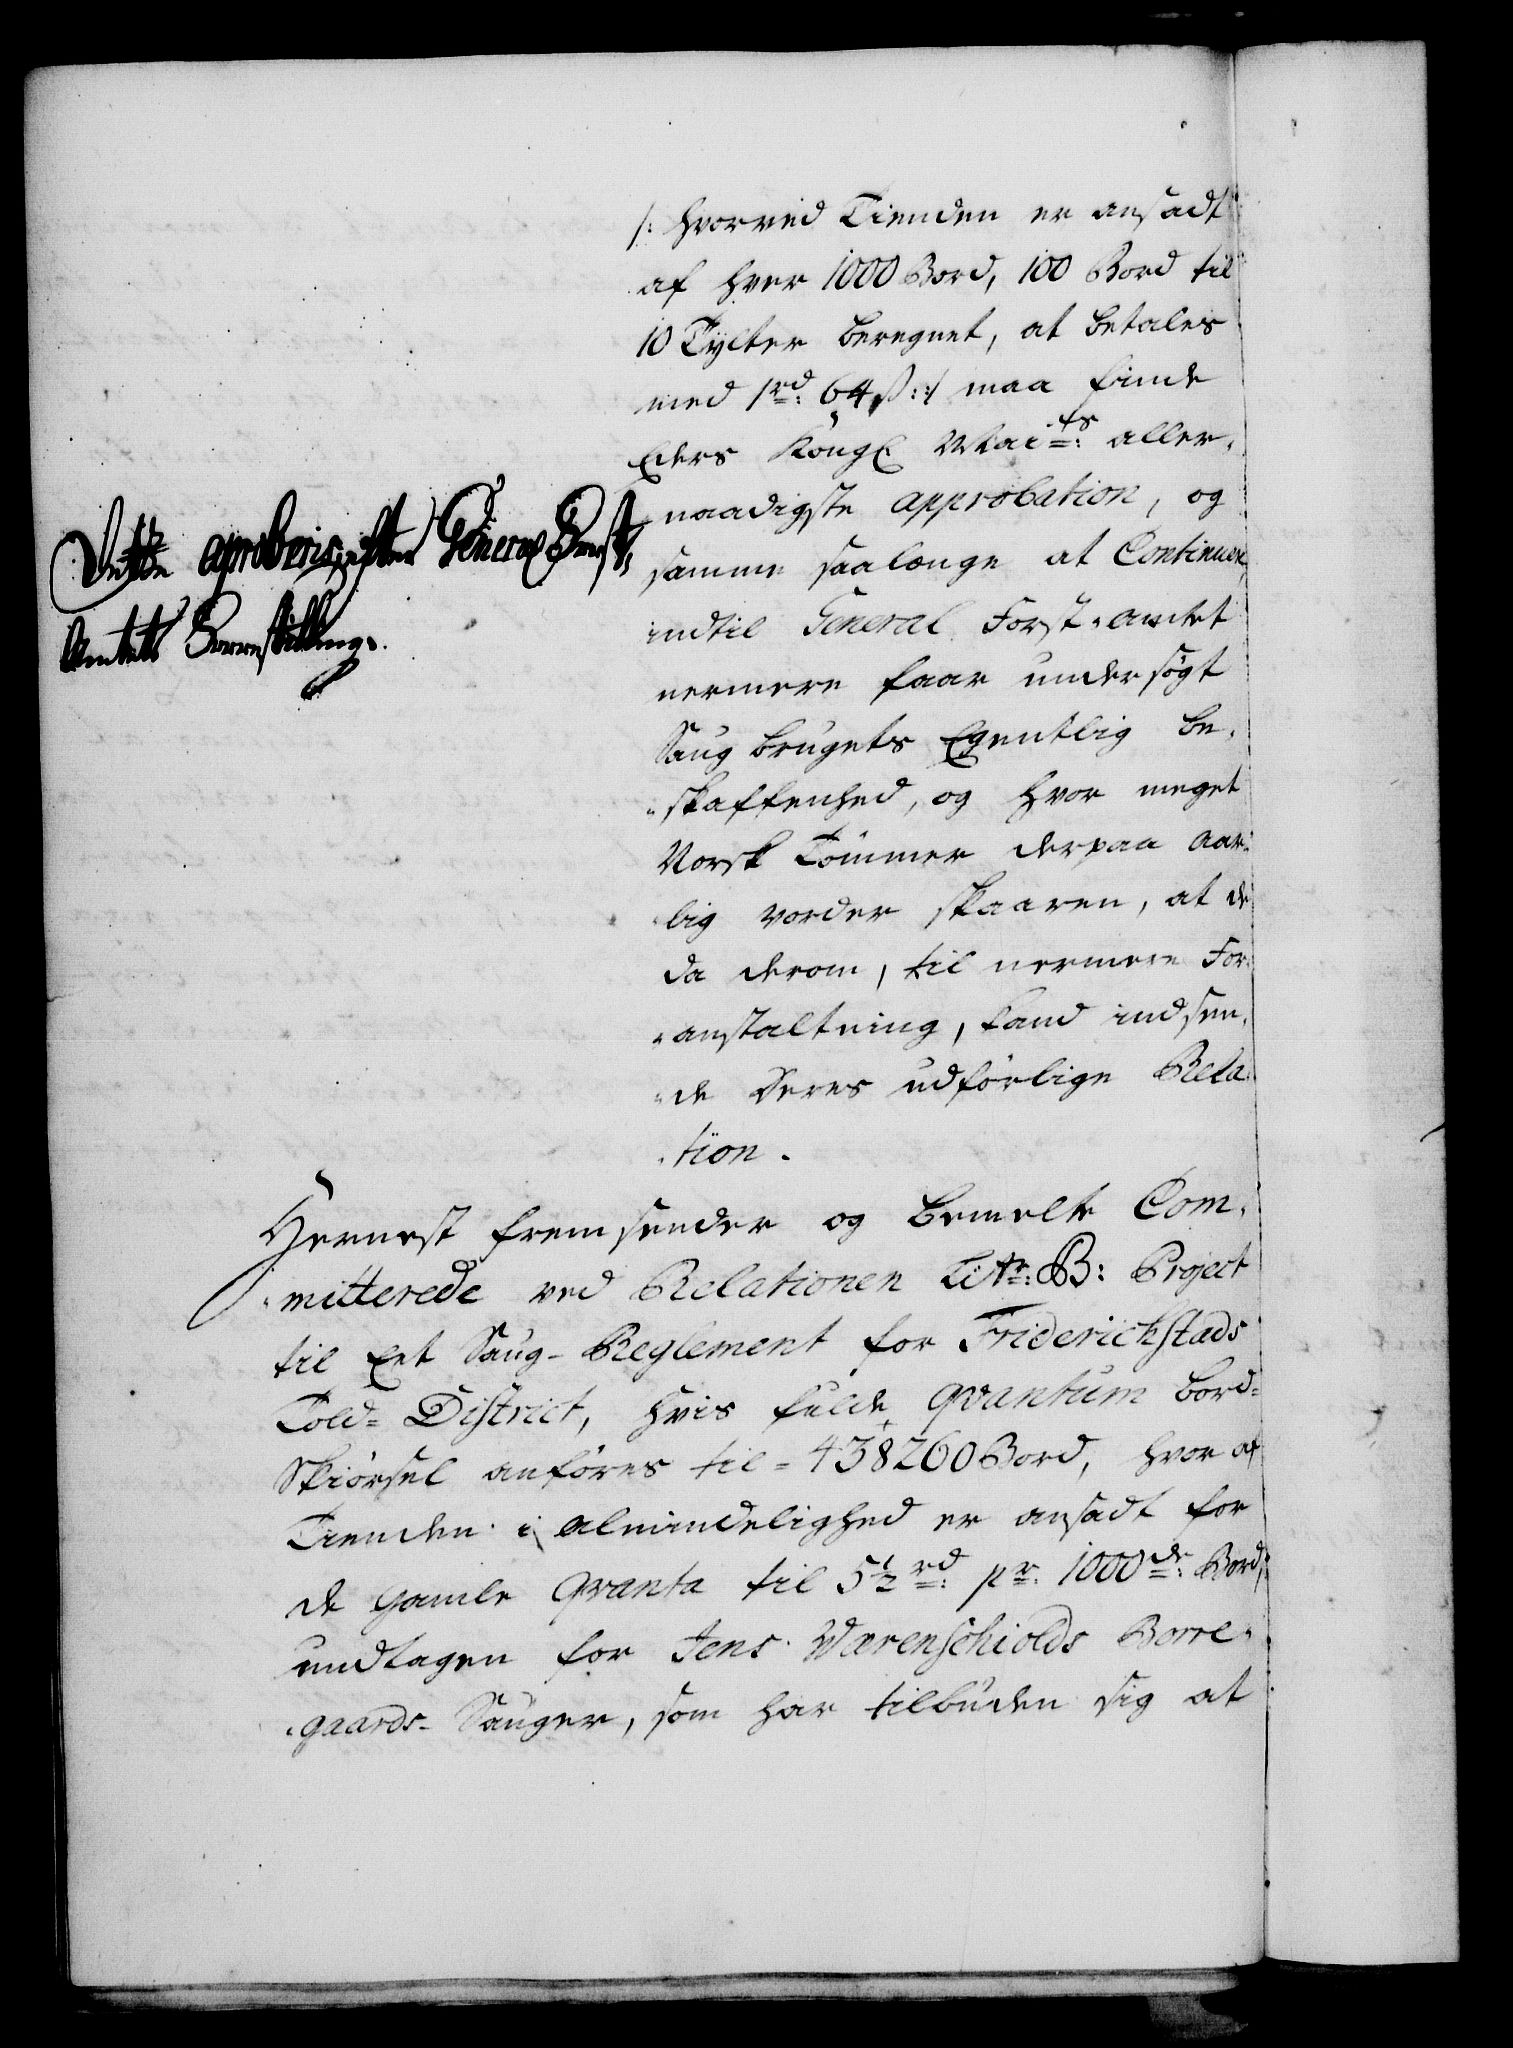 /: hvorved Tienden er ansadt
af hver 1000 Bord, 100 Bord til
10 Tylter beregnet, at betales
med 1 rd: 64 ß :/ maa finde
Eders Kongl. Maits: aller-
naadigste approbation, og
samme saalænge at Continuere,
indtil General Forst-amtet
nermere faar undersøgt
Saugbrugets Egentlig be-
skaffenhed, og hvor meget
Norsk Tømmer derpaa aar-
lig vorder skaaren, at de
da derom, til nermere For-
anstaltning, kand indsen-
de deres udførlige Rela-
tion.
Dette aproberis efter General Forst
Amtets Forrestilling.
Hernest fremsender og bemelte Com-
mitterede ved Relationen Litr: B: Project
til Eet Saug-Reglement for Friderichstads
Told-District, hvis fulde qvantum bord-
Skiørsel anføres til = 438260 Bord, hvoraf
Tienden i almindelighed er ansadt for
de gamle qvanta til 5½ rd: pr: 1000de: Bord,
undtagen for Jens Wærenschiolds Borre-
gaards-Sauger, som har tilbuden sig at